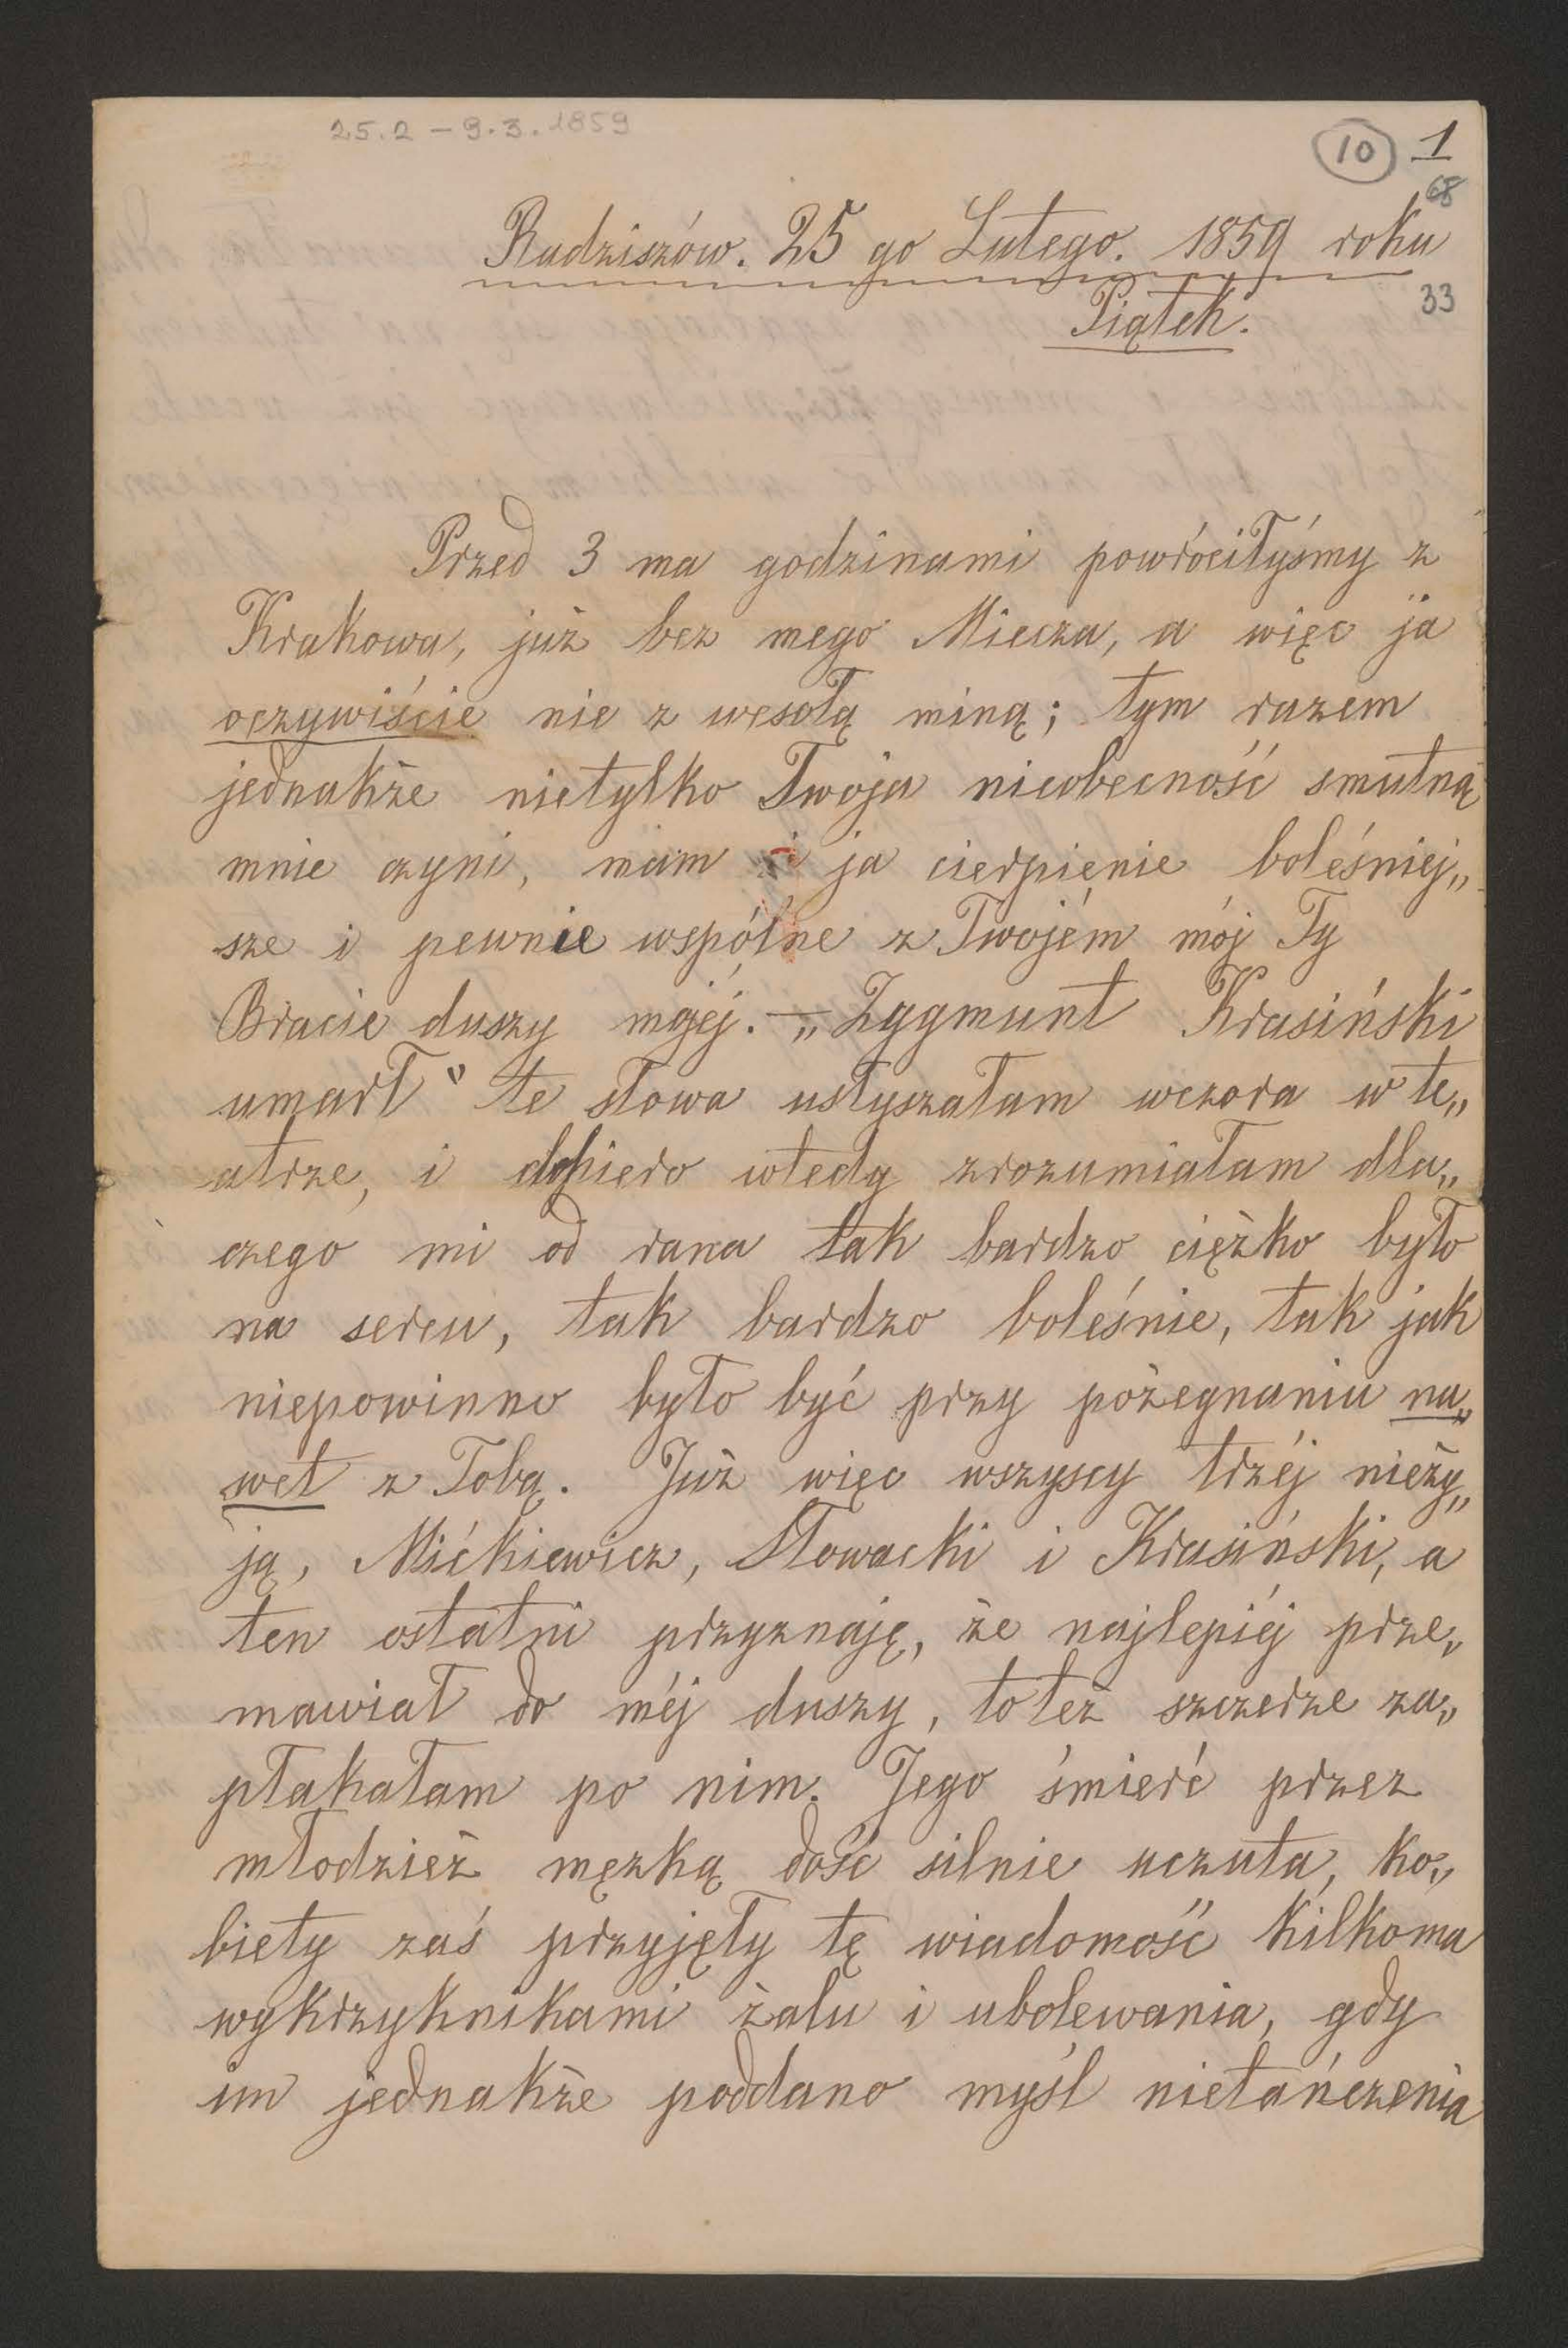 25.2 – 9.3.1859
10 1
68
Radziszów. 25 go Lutego. 1859 roku
33
Piątek.
Przed 3 ma godzinami powróciłyśmy z
Krakowa, już bez mego Miecza, a więc ja
oczywiście nie z wesołą miną; tym razem
jednakże nietylko Twoja nieobecność smutną
mnie czyni, mam i ja cierpienie boleśniej„
sze i pewnie wspólne z Twojém mój Ty
Bracie duszy mojéj. — „Zygmunt Krasiński
umarł" te słowa usłyszałam wczora w te„
atrze, i dopiero wtedy zrozumiałam dla„
czego mi od rana tak bardzo ciężko było
na sercu, tak bardzo boleśnie, tak jak
niepowinno było być przy pożegnaniu na„
wet z Tobą. Już więc wszyscy trzéj nieży„
ją, Mićkiewicz, Słowacki i Krasiński, a
ten ostatni przyznaję, że najlepiéj prze„
mawiał do méj duszy, to też szczerze za„
płakałam po nim. Jego śmierć przez
młodzież męzką dość silnie uczuta, ko„
biety zaś przyjęły tę wiadomość kilkoma
wykrzyknikami żalu i ubolewania, gdy
im jednakże poddano myśl nietańczenia